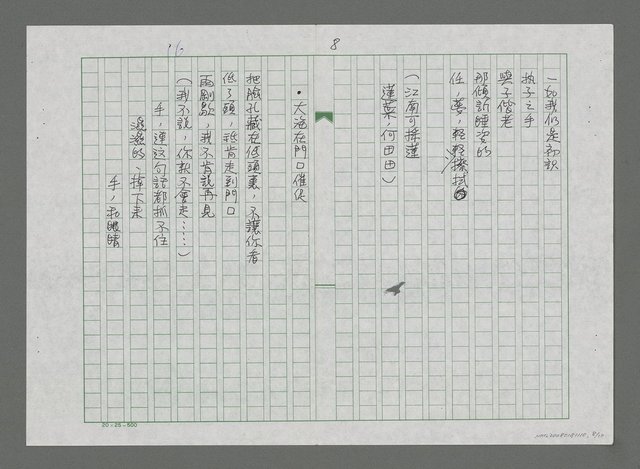 8
16
一如我們是初識
執子之手
與子偕老
那傾訴睡姿的
任，夢，輕輕擦拭
（江南可採蓮
蓮葉，何田田）
•大海在門口催促
把臉孔藏在低頭裏，不讓你看
低了頭，祇肯走到門口
雨剛歇，我不肯說再見
（我不說，你就不會走……）
手，連這句話都抓不住
濕濕的，掉下來
手，和眼睛
20-25-500